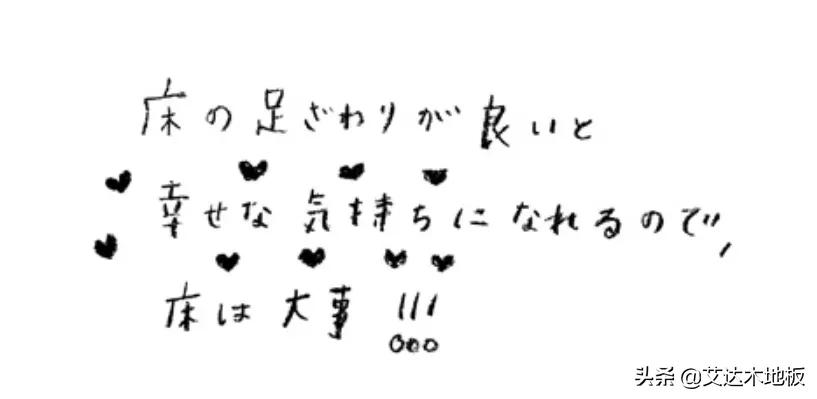 床の足ざわりが良いと
幸せな気持ちになれるので,
床は大事!!!
头条 @艾达木地板